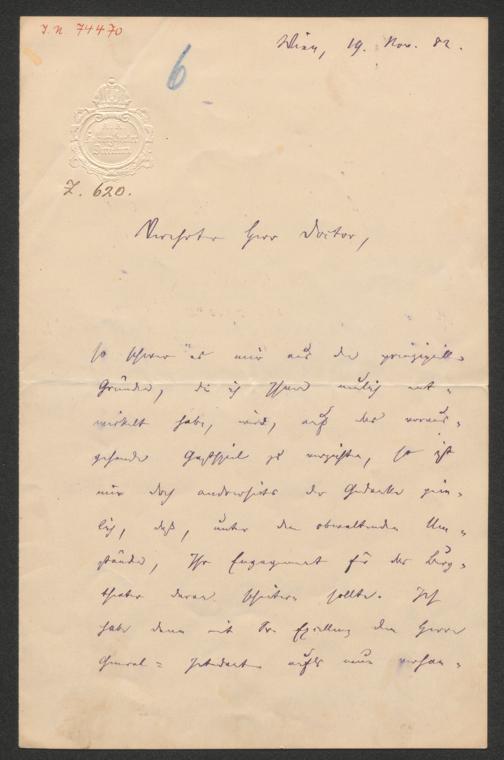 J.N. 74470
6
Wien, 19. Nov. 82.
Z. 620.
Verehrter Herr Doctor,
so schwer es mir aus den prinzipiell-
Gründen, die ich Ihnen neulich ent-
wickelt habe, wird, auf das voraus-
gehende Gastspiel zu verzichten, so ist
mir doch anderseits der Gedanke pein-
lich, daß, unter den obwaltenden Um-
ständen, Ihr Engagement für das Burg-
theater daran scheitern sollte. Ich
habe denn mit Sr. Exzellenz dem Herrn
General-Intendanten aufs neue verhan-